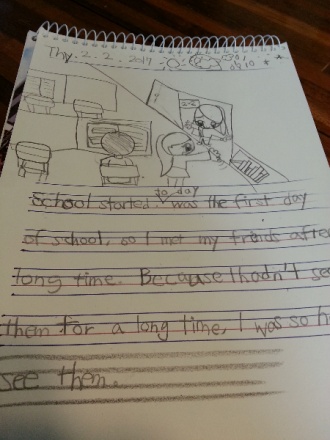 Thy. 2. 2. 2017
to day
School started. was the first day
of school, so I met my friends afte
long time. Because I hadn't see
them for a long time, I was so h
see them.